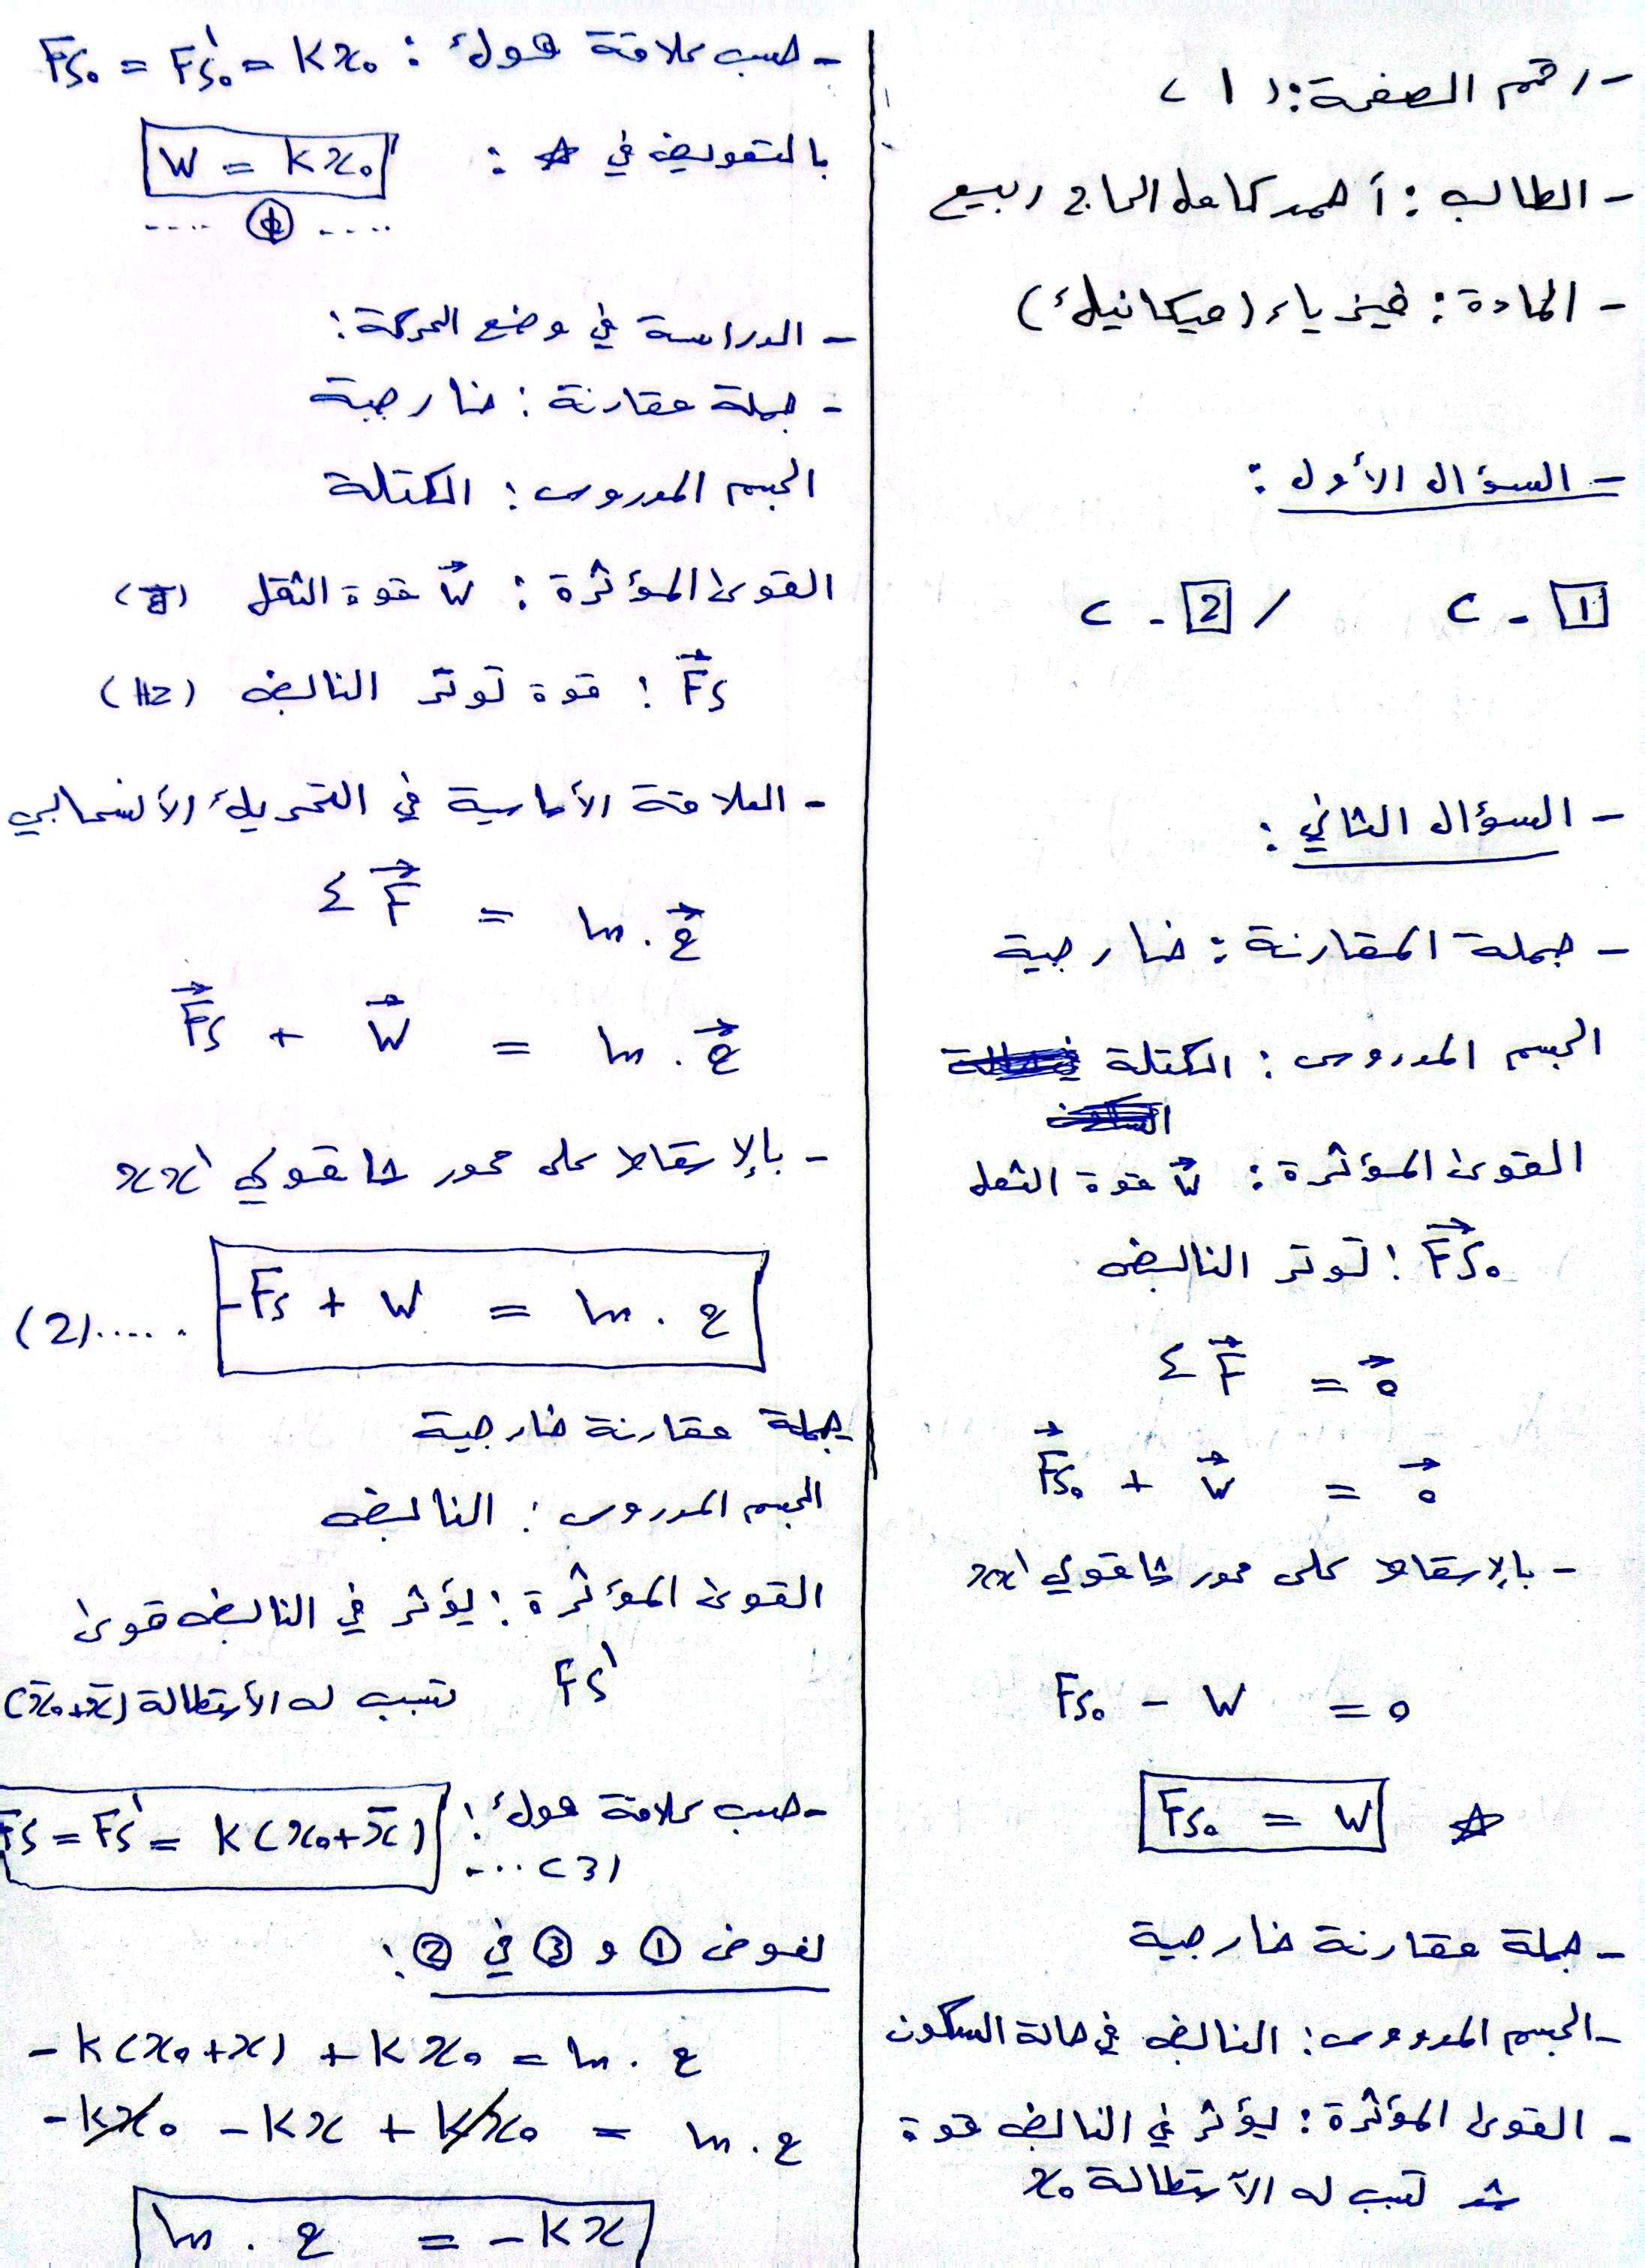 - رقم الصفحة: (1)
- الطالب: أحمد كامل الحاج ربيع
- المادة: فيزياء (ميكانيك)
- السؤال الأول:
1 - C / 2 - C
- السؤال الثاني:
- جملة المقارنة: خارجية
الجسم المدروس: الكتلة
القوى المؤثرة: W⃗ قوة الثقل
F⃗s₀: توتر النابض
Σ F⃗ = 0⃗
F⃗s₀ + W⃗ = 0⃗
- بالإسقاط على محور شاقولي xx'
Fs₀ - W = 0
☆ Fs₀ = W
- جملة مقارنة خارجية
- الجسم المدروس: النابض في حالة السكون
- القوى المؤثرة: يؤثر في النابض قوة
تسبب له الآستطالة x₀
- حسب علاقة هوك: Fs₀ = Fs'₀ = k x₀
بالتعويض في ☆: W = k x₀
.... ① ....
- الدراسة في وضع الحركة:
- جملة مقارنة: خارجية
الجسم المدروس: الكتلة
القوى المؤثرة: W⃗ قوة الثقل
F⃗s: قوة توتر النابض
- العلاقة الأساسية في التحريك الأنسحابي
Σ F⃗ = m . a⃗
F⃗s + W⃗ = m . a⃗
- بالإسقاط على محور شاقولي xx'
-Fs + W = m . a ..... (2)
جملة مقارنة خارجية
الجسم المدروس: النابض
القوى المؤثرة: يؤثر في النابض قوى
Fs' تسبب له الأستطالة (x₀+x̄)
- حسب علاقة هوك: Fs = Fs' = k(x₀+x̄)
.... (3)
نعوض ① و ③ في ②:
-k(x₀+x) + k x₀ = m . a
-kx₀ - kx + kx₀ = m . a
m . a = -kx